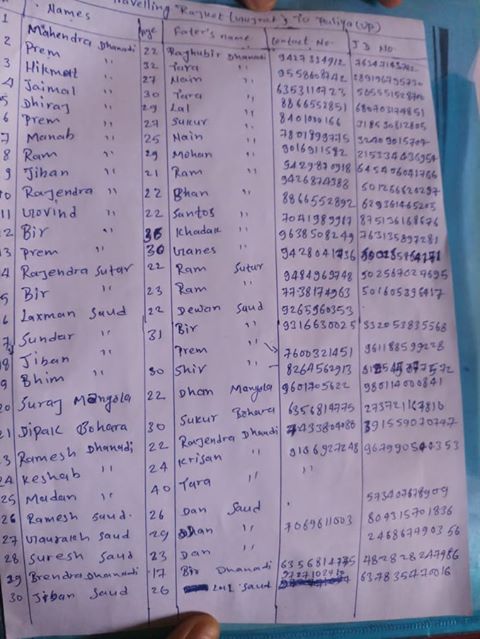 Travelling Rajkot (Gujrat) To Puliya (UP)
Names Age Fater's name Contact No. I D No.
Mahendra Dhanadi 22 Raghubir Dhanadi 9427334912
2 Prem " 32 Tara "
3 Hikmat " 27 Nain " 9558608742
4 Jaimal " 30 Tara " 6353110723
5 Dhiraj " 29 Lal " 8866552851 680703174851
6 Prem " 27 Sukur " 8401000166 318530812805
7 Manab " 25 Nain " 7801899775
8 Ram " 29 Mohan " 9016911592 215334436954
9 Jiban " 21 Ram " 9429870918 645406041766
10 Rajendra " 22 Bhan " 9426874388 501266620297
11 Govind " 22 Santos " 8866552892 629361465203
12 Bir " 36 Khadak " 7041989967 875136168676
13 Prem " 30 Ganes " 9638508249 763135897281
14 Rajendra Sutar 22 Ram Sutar 9428041736
5 Bir " 23 Ram " 9484969748 502567027695
6 Laxman Saud 22 Dewan Saud 7738174963 501605396417
7 Sundar " 31 Bir " 9265960353
18 Jiban " Prem " 9316630025 332053835568
9 Bhim " 30 Shir " 7600321451 961188599228
20 Suraj Mangola 22 Dham Mangola 8264562913
21 Dipak Bohara 30 Sukur Bohara 9601705622 980114000841
23 Ramesh Dhanadi 22 Rajendra Dhanadi 6356814775 273721167810
24 Keshab " 24 Krisan " 7433804080 391559070747
25 Madan " 40 Tara " 9106927248 967990540353
26 Ramesh Saud. 26 Dan Saud
27 Gaurakh Saud 29 Dhan " 7069611003 804315701836
28 Suresh Saud 23 Dan " 246867490356
29 Birendra Dhanadi 17 Bir Dhanadi 6356814775 482828247986
30 Jiban Saud 26 Lal Saud 9727102410 637835470016